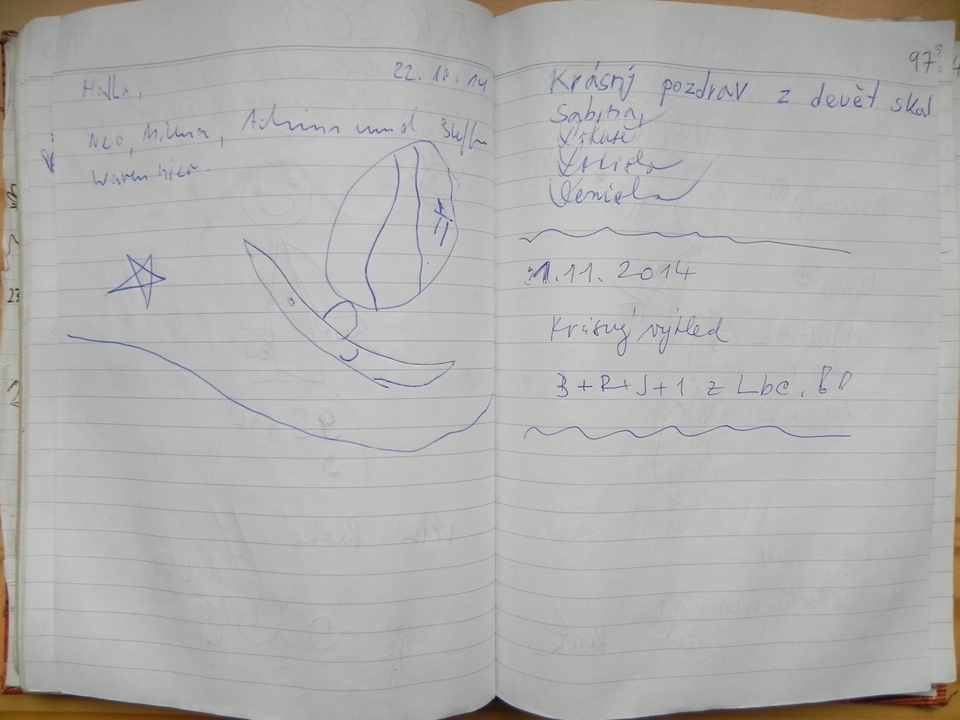 22.10.14
Hallo,
Neo, Milena, und
waren hier.
97
Krásný pozdrav z devět skal
Sabina,
Lukáš
Daniela
1.11.2014
Krásný výhled
3+R+J+1 z Lbc.